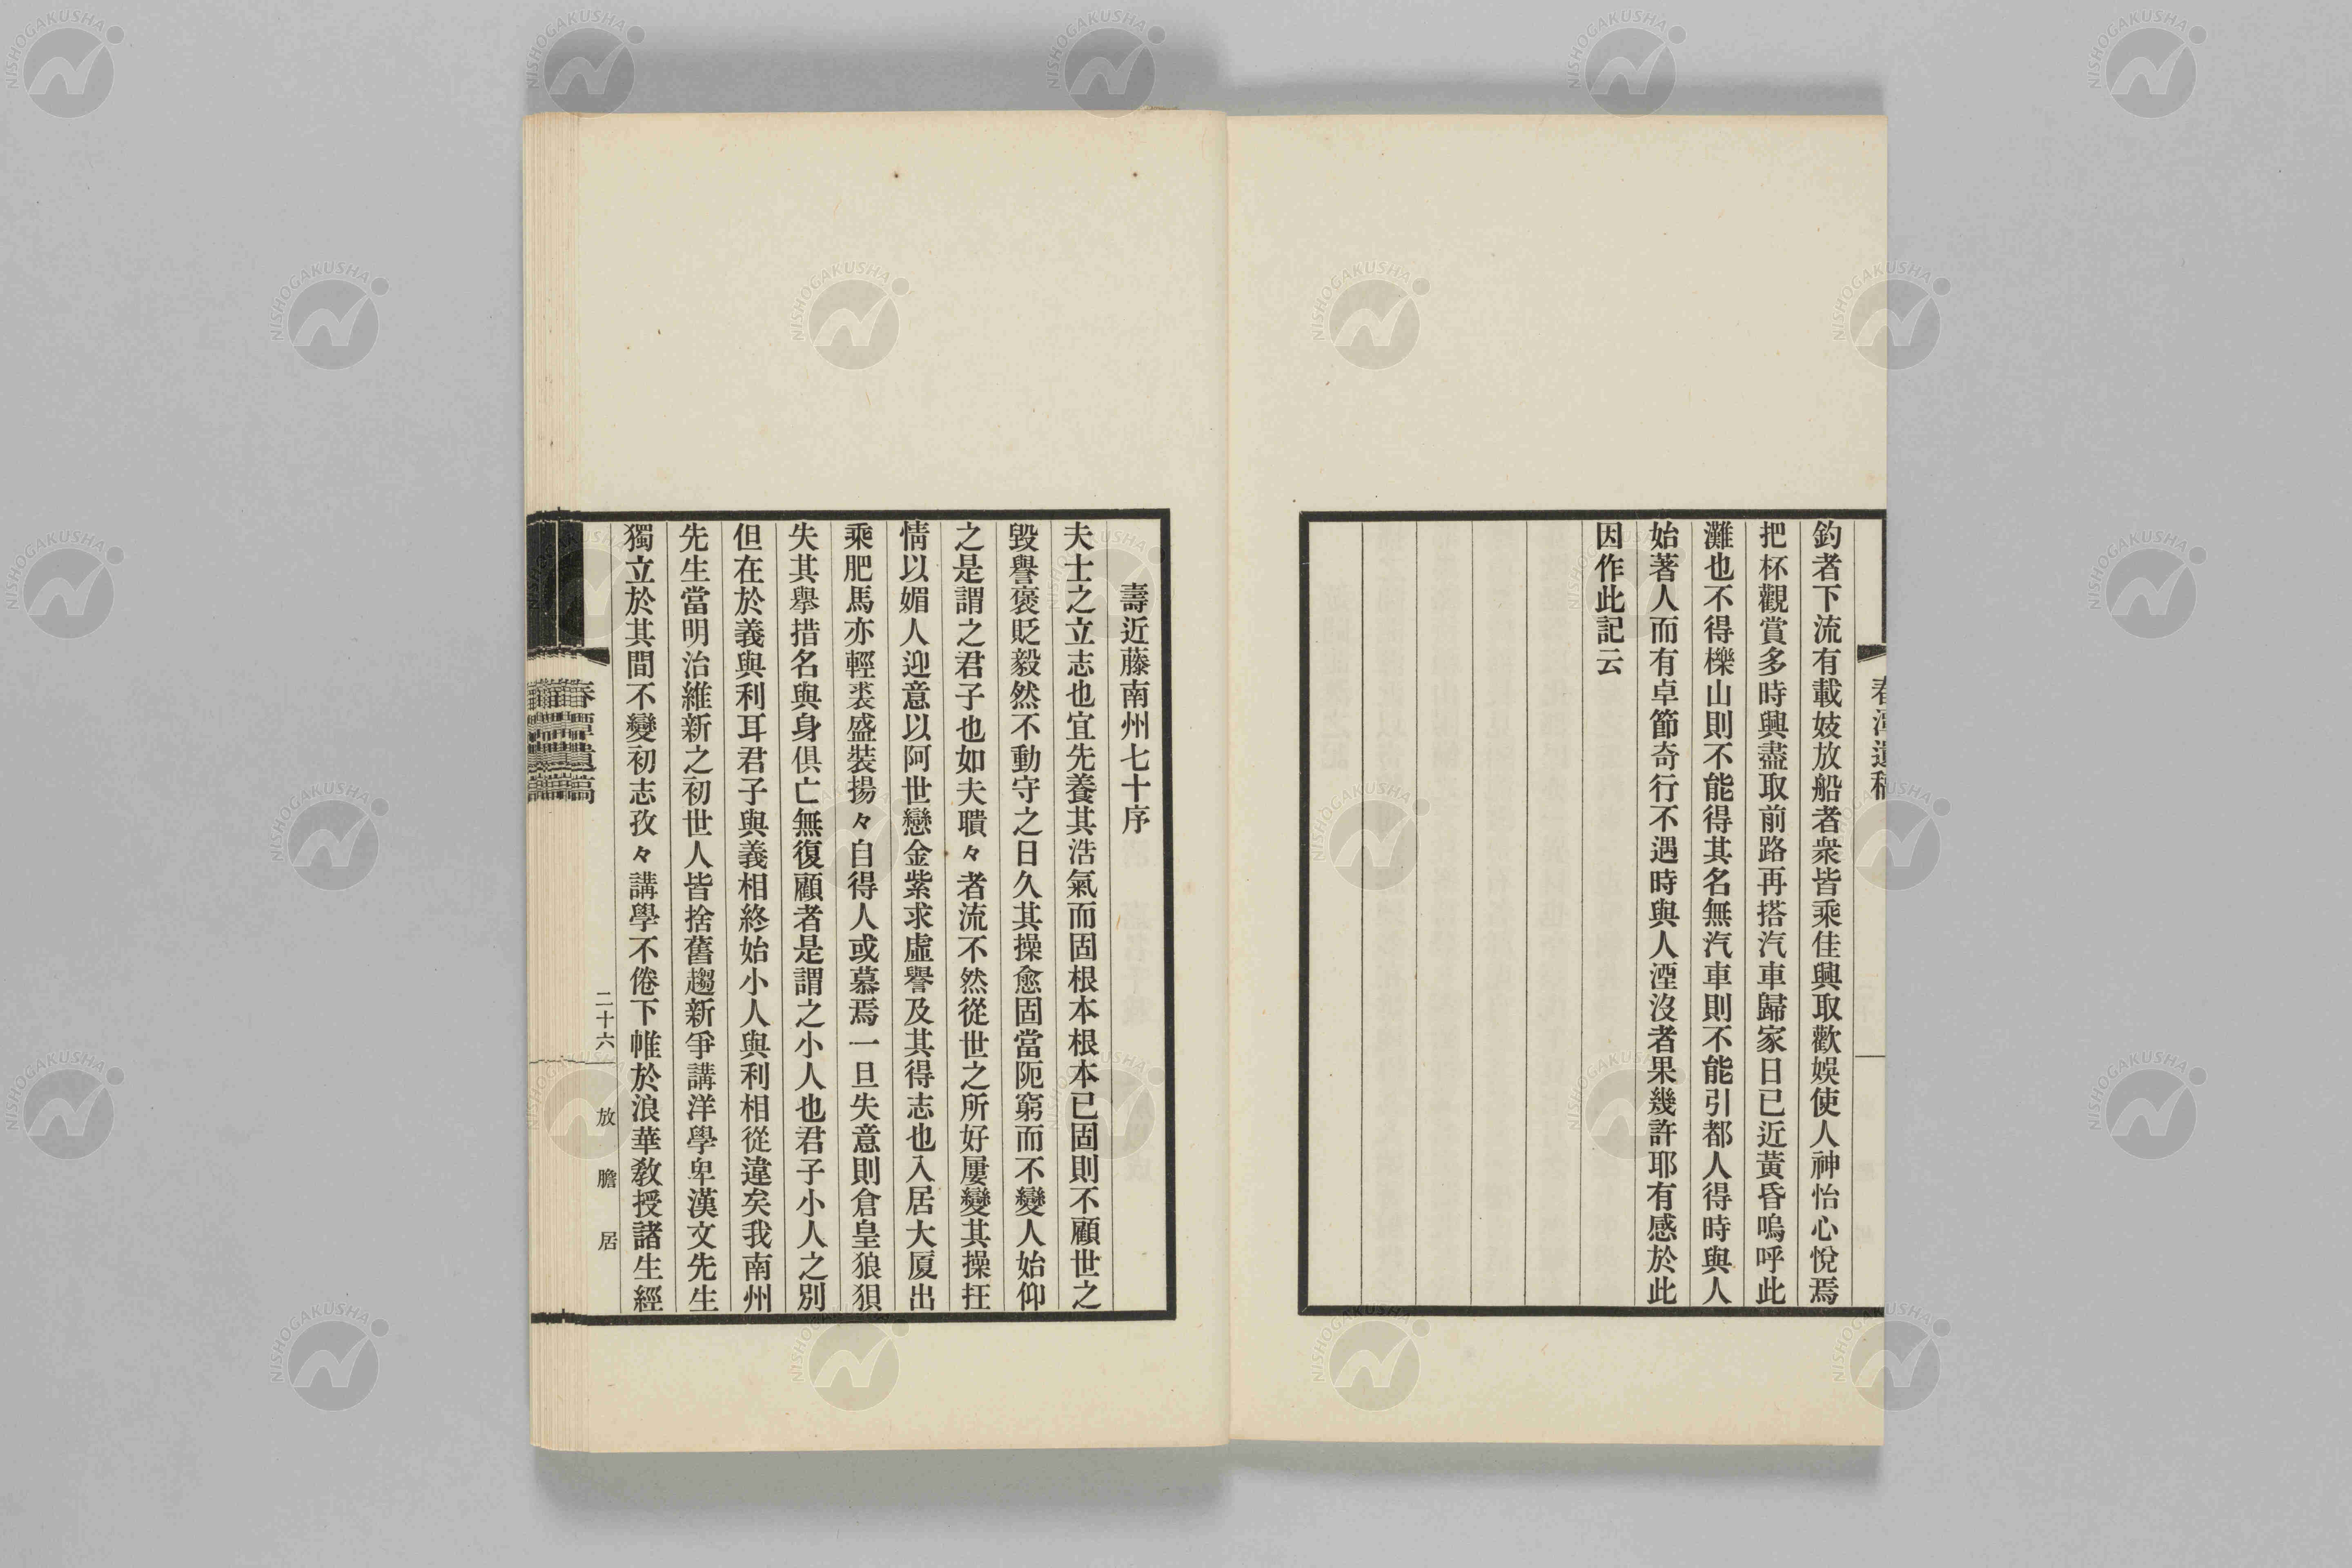 春潭遺稿
釣者下流有載妓放船者衆皆乘佳興取歡娛使人神怡心悅焉
把杯觀賞多時興盡取前路再搭汽車歸家日已近黃昏嗚呼此
灘也不得櫟山則不能得其名無汽車則不能引都人得時與人
始著人而有卓節奇行不遇時與人湮沒者果幾許耶有感於此
因作此記云
壽近藤南州七十序
夫士之立志也宜先養其浩氣而固根本根本已固則不顧世之
毀譽褒貶毅然不動守之日久其操愈固當阨窮而不變人始仰
之是謂之君子也如夫聵々者流不然從世之所好屢變其操抂
情以媚人迎意以阿世戀金紫求虛譽及其得志也入居大厦出
乘肥馬亦輕裘盛裝揚々自得人或慕焉一旦失意則倉皇狼狽
失其擧措名與身俱亡無復顧者是謂之小人也君子小人之別
但在於義與利耳君子與義相終始小人與利相從違矣我南州
先生當明治維新之初世人皆捨舊趨新爭講洋學卑漢文先生
獨立於其間不變初志孜々講學不倦下帷於浪華敎授諸生經
春潭遺稿
二十六
放膽居
NISHOGAKUSHA